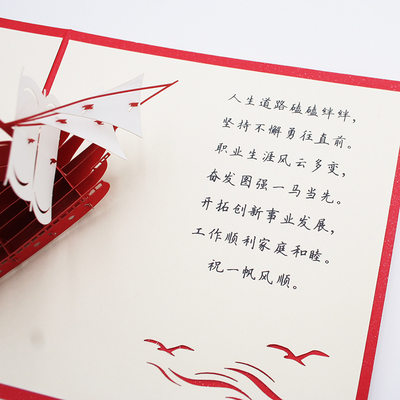 人生道路磕磕绊绊，
坚持不懈勇往直前。
职业生涯风云多变，
奋发图强一马当先。
开拓创新事业发展，
工作顺利家庭和睦。
祝一帆风顺。